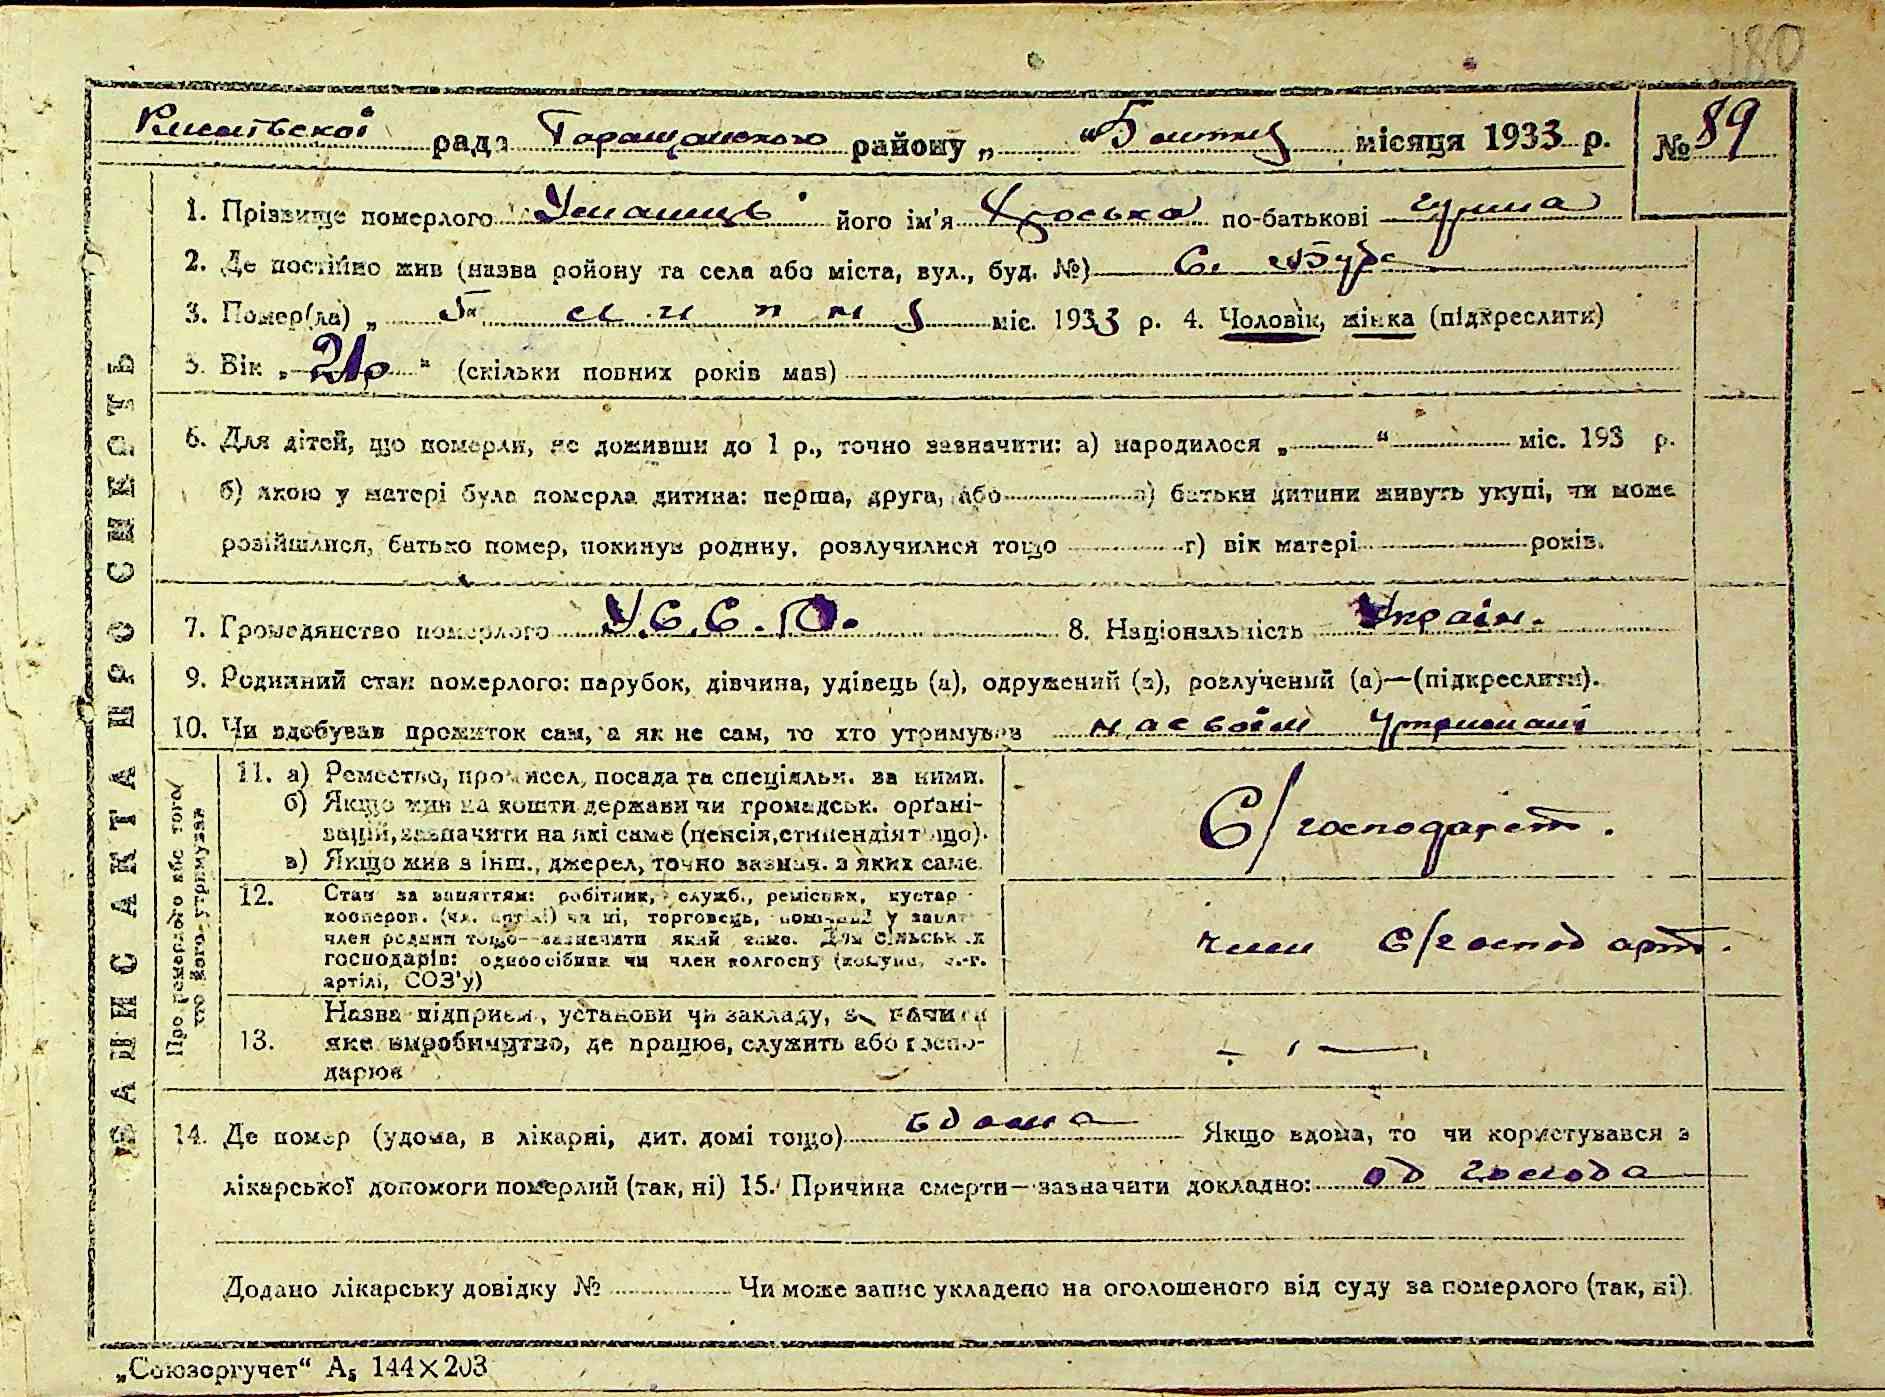 180
рада Таращанського району „ місяця 1933 р. № 89
1. Прізвище померлого його ім'я по-батькові
2. Де постійно жив (назва району та села або міста, вул., буд. №) С.
3. Помер(ла) „ 5 " липня міс. 1933 р. 4. Чоловік, жінка (підкреслити)
5. Вік „ " (скільки повних років мав)
6. Для дітей, що померли, не доживши до 1 р., точно зазначити: а) народилося „ " міс. 193 р.
б) якою у матері була померла дитина: перша, друга, або в) батьки дитини живуть укупі, чи може
розійшлися, батько помер, покинув родину, розлучилися тощо г) вік матері років.
7. Громадянство померлого У.С.С.Р. 8. Національність Україн.
9. Родинний стан померлого: парубок, дівчина, удівець (а), одружений (а), розлучений (а)—(підкреслити).
10. Чи здобував прожиток сам, а як не сам, то хто утримував на своїм утримані
ЗАПИС АКТА ПРО СМЕРТЬ
Про померлого або того, хто його утримував
11. а) Ремество, промисел, посада та спеціяльн. за ними.
б) Якщо жив на кошти держави чи громадськ. органі-
зацій, зазначити на які саме (пенсія, стипендія тощо).
в) Якщо жив з інш., джерел, точно зазнач. з яких саме.
С/господарст.
12. Стан за заняттям: робітник, служб., ремісник, кустар
кооперов. (чл. артілі) чи ні, торговець, помічний у занят
член родини тощо—зазначити який саме. Для сільських
господарів: одноосібник чи член колгоспу (комуна, с.-г.
артілі, СОЗ'у)
член С/господарт.
13. Назва підприєм., установи чи закладу, зазначити
яке виробництво, де працює, служить або госпо-
дарює
14. Де помер (удома, в лікарні, дит. домі тощо) вдома Якщо вдома, то чи користувався з
лікарської допомоги померлий (так, ні) 15. Причина смерти—зазначити докладно: од голода
Додано лікарську довідку № Чи може запис укладено на оголошеного від суду за померлого (так, ні).
„Союзоргучет" А₅ 144×203